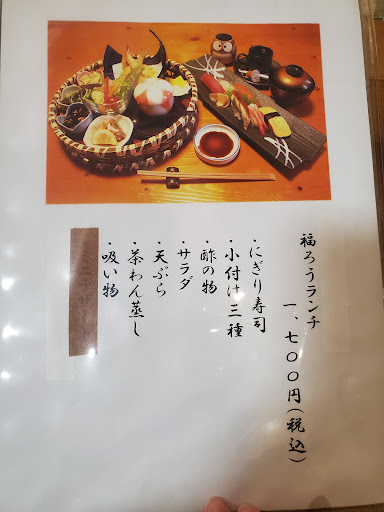 福ろうランチ
一、七〇〇円(税込)
・にぎり寿司
・小付け三種
・酢の物
・サラダ
・天ぷら
・茶わん蒸し
・吸い物